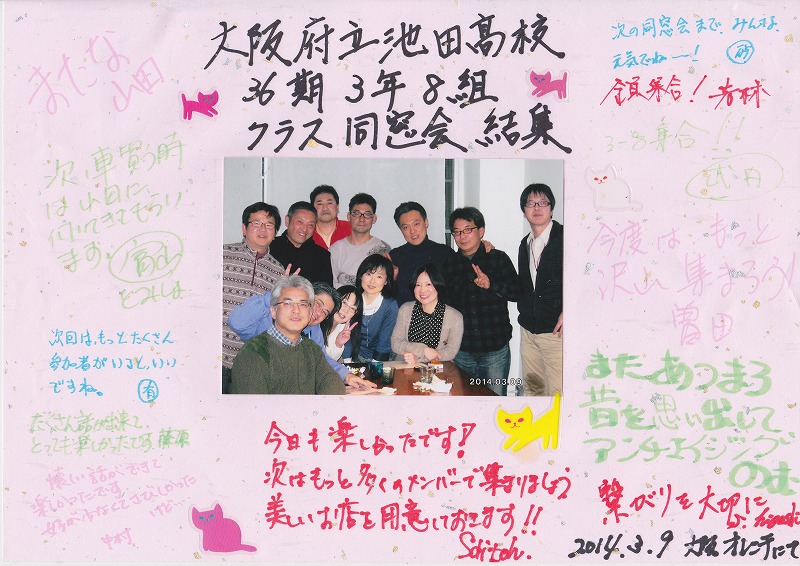 大阪府立池田高校
36期 3年8組
クラス同窓会 結集
まだな
山田
次の同窓会まで、みんな
元気でねー!
全員集合! 若林
3-8集合!!
武内
次、車買う時
は山田に
付いてきてもらい
ます。
今度はもっと
沢山集まろう!
曽田
次回は、もっとたくさん
参加者がいると、いい
ですね。 有
たくさん話が出来て
とっても楽しかったです 藤原
懐しい話ができて
楽しかったです
けど…
中村
2014.03.09
今日も楽しかったです!
次はもっと多くのメンバーで集まりましょう
美しいお店を用意しておきます!!
またあつまろ
昔を思い出して
アンチエイジング
のむ
繋がりを大切に
2014.3.9 オレンチにて